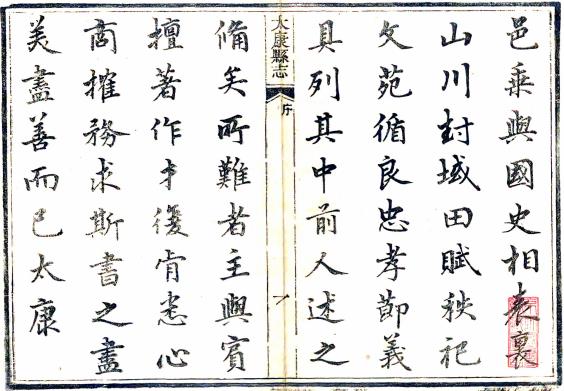 邑乘與國史相表裏
山川封域田賦秩祀
文苑循良忠孝節義
具列其中前人述之
太康縣志
序
備矣所難者主與賓
擅著作才復肯悉心
商搉務求斯書之盡
美盡善而已太康